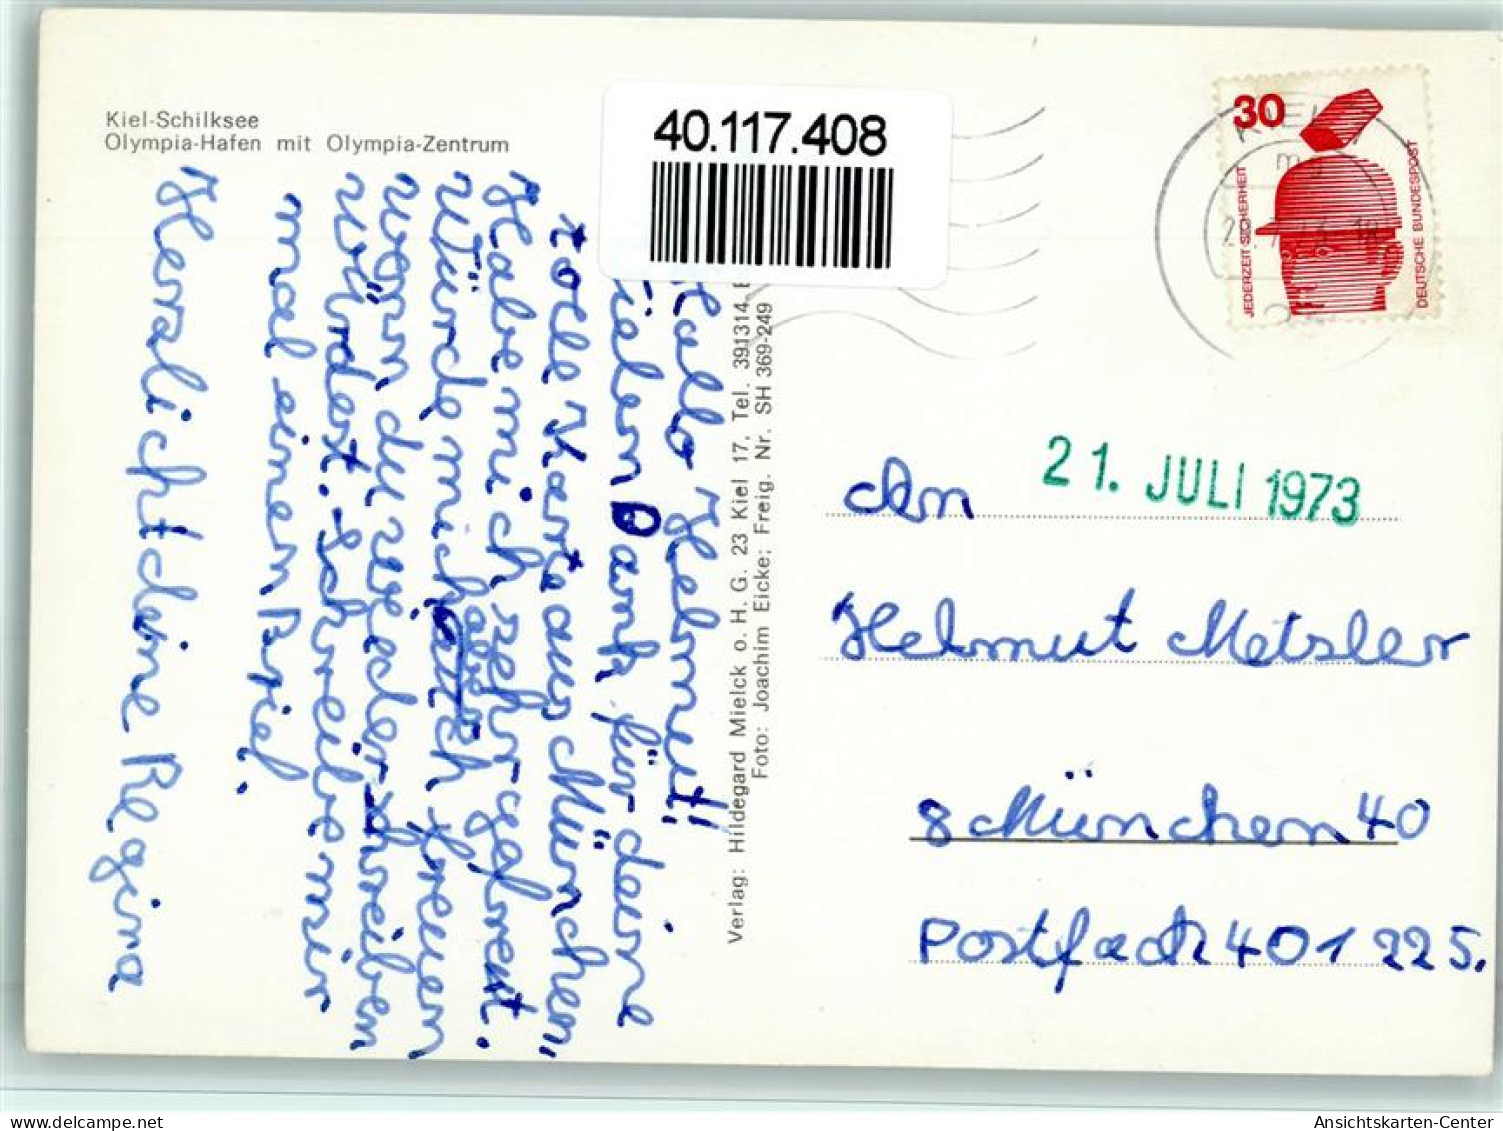 Kiel-Schilksee
Olympia-Hafen mit Olympia-Zentrum
40.117.408
30
JEDERZEIT SICHERHEIT
DEUTSCHE BUNDESPOST
KIEL
Hallo Helmut!
Vielen Dank für deine
tolle Karte aus München"
Habe mich sehr gefreut.
Würde mich aber freuen
wenn du wieder schreiben
würdest. Schreibe mir
mal einen Brief.
Herzlichst deine Regina
Verlag: Hildegard Mielck o. H. G. 23 Kiel 17, Tel. 391314,
Foto: Joachim Eicke; Freig. Nr. SH 369-249
21. JULI 1973
An
Helmut Metsler
8 München 40
Postfach 401225.
oldthing.de
Ansichtskarten-Center